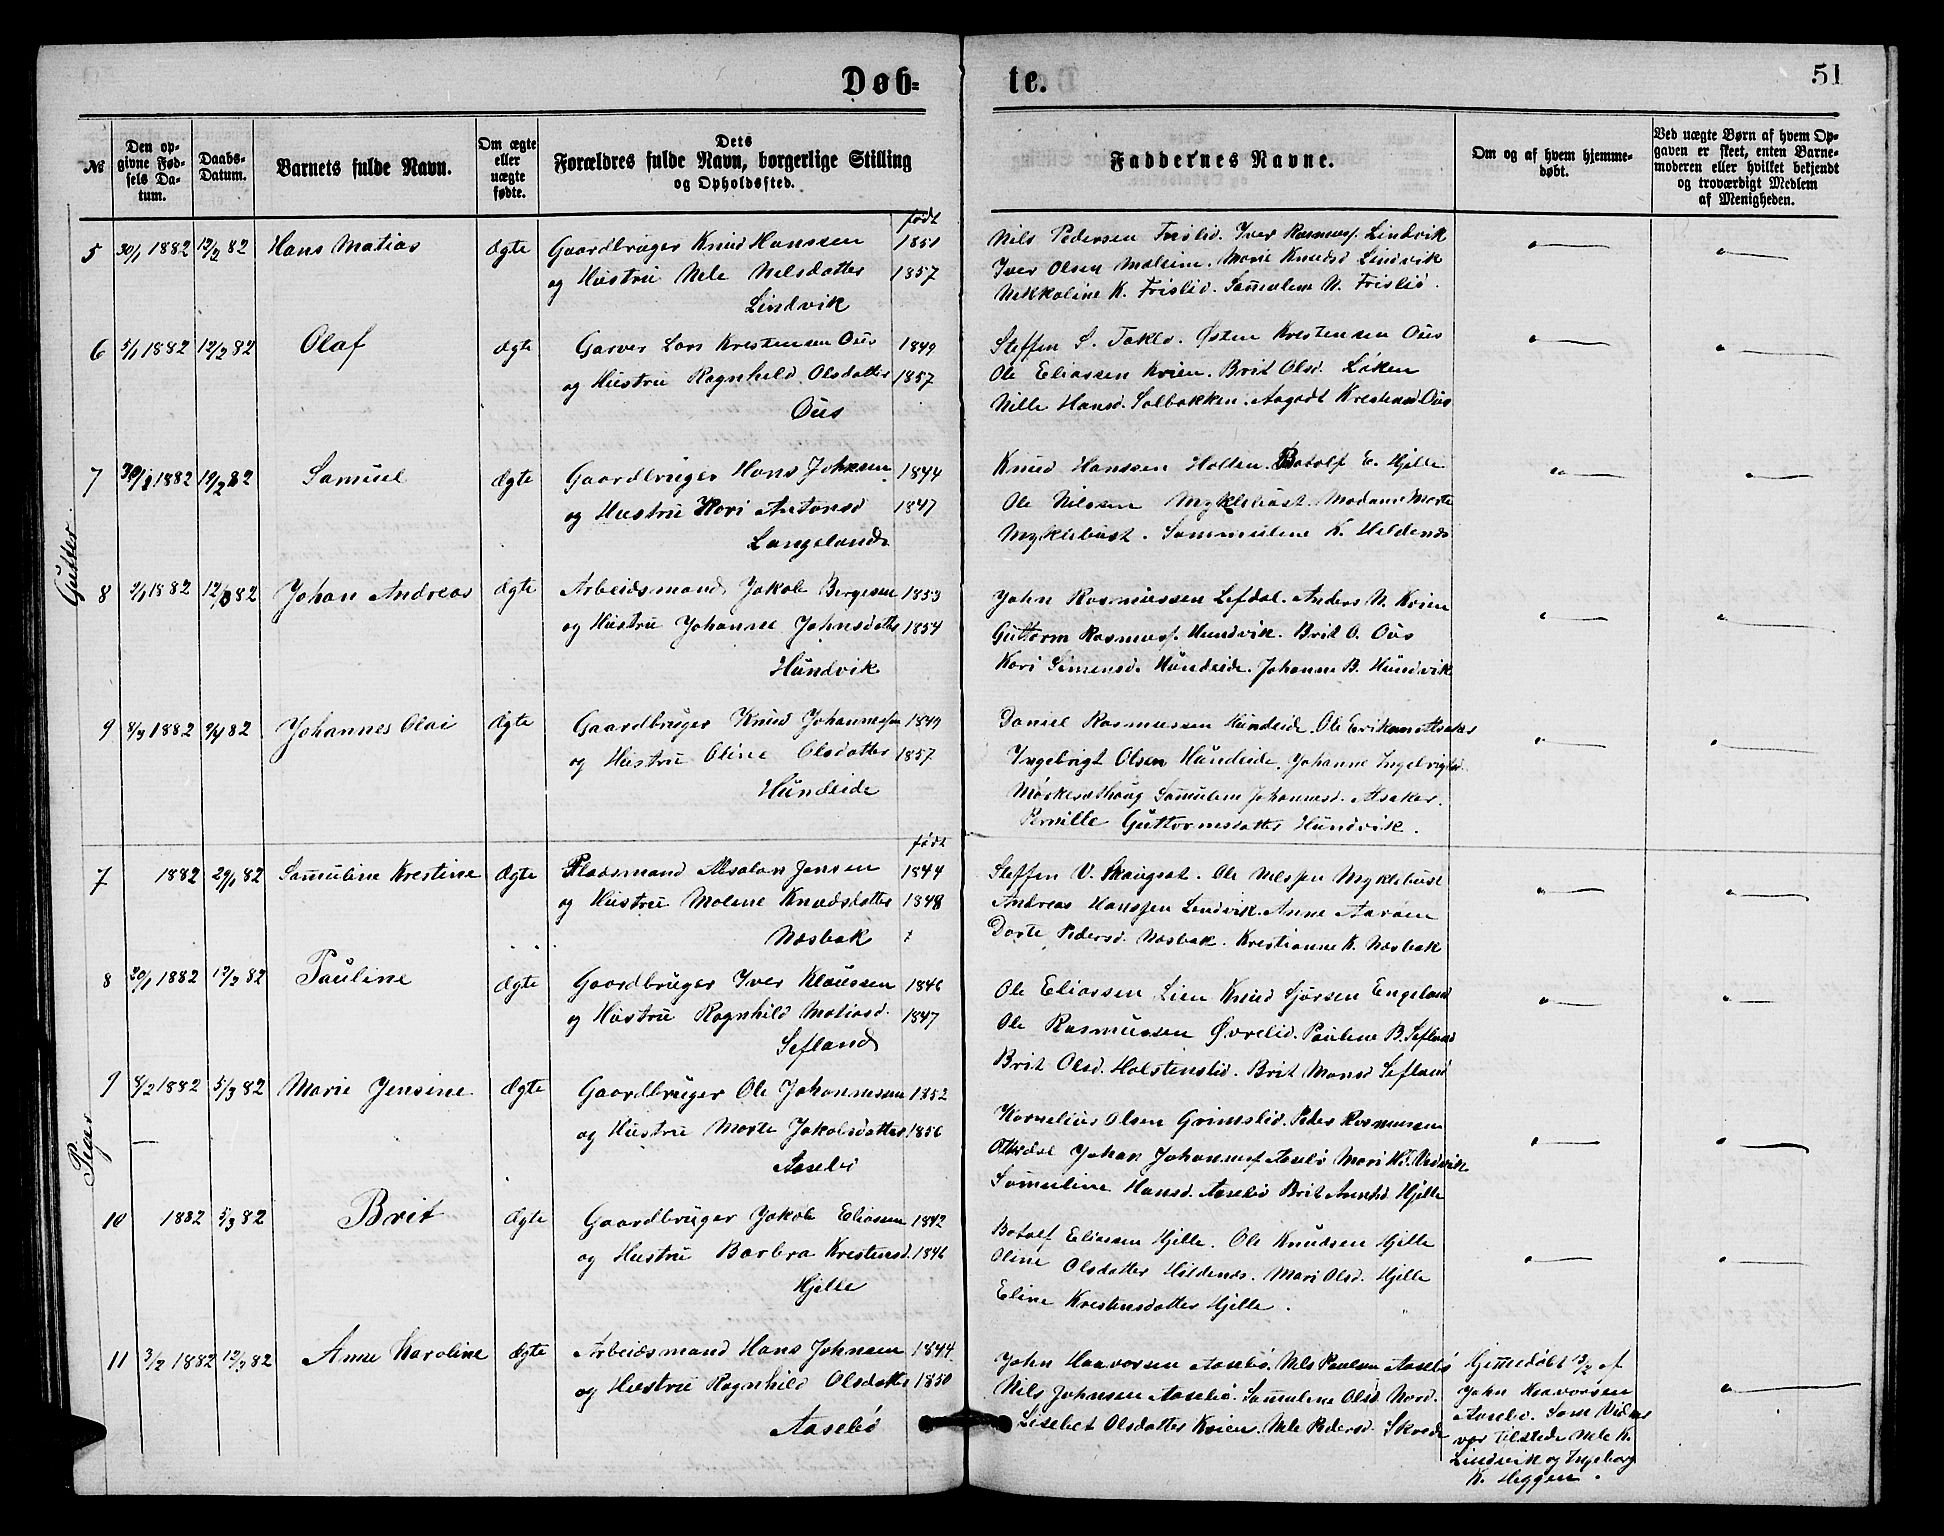 Døb-
te.
51
№
Den op-
givne Fød-
sels Da-
tum.
Daabs-
Datum.
Barnets fulde Navn.
Om ægte
eller
uægte
fødte.
Dets
Forældres fulde Navn, borgerlige Stilling
og Opholdssted.
Faddernes Navne.
Om og af hvem hjemme-
døbt.
Ved uægte Børn af hvem Op-
gaven er skeet, enten Barne-
moderen eller hvilket bekjendt
og troværdigt Medlem
af Menigheden.
Gutter.
født
5 30/1 1882 12/2 82 Hans Matias Ægte Gaardbruger Knud Hanssen 1851
og Hustru Nele Nelsdatter 1857
Lindvik
Nils Pedersen Frislid. Iver Rasmusf. Lindvik
Iver Olsen Malsim. Marie Knudsd Lindvik
Nikkoline K. Frislid. Samuline N. Frislid.
6 5/1 1882 12/2 82 Olaf Ægte Garver Lars Krestensen Ous 1849
og Hustru Ragnhild Olsdatter 1857
Ous
Steffen S. Taklo. Østen Krestensen Ous
Ole Eliassen Kvien. Brit Olsd. Løken
Nille Hansd. Solbakken. Aagodt Krestensd Ous
7 1882 19/2 82 Samuel Ægte Gaardbruger Hans Johnsen 1844
og Hustru Kari Antonsd 1847
Langeland
Knud Hanssen Holten. Botolf E. Hjelle
Ole Nilssen Myklebust. Madame Marte
Myklebust. Sammuline K. Hildenes
8 1882 12/ 82 Johan Andreas Ægte Arbeidsmand Jakob Børgesen 1853
og Hustru Johanne Johnsdatter 1854
Hundvik
John Rasmussen Lefdal. Anders N. Kvien
Guttorm Rasmusf. Hundvik. Brit O. Ous
Kari Simensd. Hundeide. Johanne B. Hundvik
9 1882 82 Johannes Olai Ægte Gaardbruger Knud Johannessen 1849
og Hustru Oline Olsdatter 1857
Hundeide
Daniel Rasmussen Hundeide. Ole Eriksen Alsaker
Ingebrigt Olsen Hundeide, Johanne Ingebrigtsd.
Mørkesethaug Samulem Johannesd. Alsaker.
Pernille Guttormsdatter Hundvik.
Piger
født
7 1882 29/1 82 Samuline Krestine Ægte Pladsmand Absalon Jensen 1844
og Hustru Malene Knudsdatter 1848
Nosbak
Steffen V. Skaugset. Ole Nilssen Myklebust
Andreas Hanssen Lindvik. Anne Aarøen
Dorte Pedersd. Nosbak. Krestianne K. Nosbak
8 20/1 1882 12/2 82 Pauline Ægte Gaardbruger Iver Klaussen 1846
og Hustru Ragnhild Matiasd. 1847
Sefland
Ole Eliassen Lien Knud Sjursen Engeland
Ole Rasmussen Øvrelid. Pauline B. Sefland
Brit Olsd. Holstenslid. Brit Monsd Sefland
9 8/2 1882 5/3 82 Marie Jensine Ægte Gaardbruger Ole Johannessen 1852
og Hustru Marte Jakobsdatter 1856
Aasebø
Kornelius Olsen Grimslid. Peder Rasmussen
Johan Johannesf Aasebø Mari
Samuline Hansd. Aasebø Brit Hjelle
10 1882 5/3 82 Brit Ægte Gaardbruger Jakob Eliassen 1842
og Hustru Barbra Krestensd. 1846
Hjelle
Botolf Eliassen Hjelle. Ole Knudsen Hjelle
Oline Olsdatter Hildenes. Mari Olsd. Hjelle
Eline Krestensdatter Hjelle.
11 3/2 1882 12/3 82 Anne Karoline Ægte Arbeidsmand Hans Johnsen 1844
og Hustru Ragnhild Olsdatter 1850
Aasebø
John Haavorsen Aasebø. Nils Paulsen Aasebø
Nils Johnsen Aasebø. Samuline Olsd Nord.
Lisebet Olsdatter Kvien. Nele Pedersd. Skrede
Hjemmedøbt af
John Haavorsen
Aasebø. Som Vidner
var tilstede Nele K.
Lindvik og Ingeborg
K. Heggen.